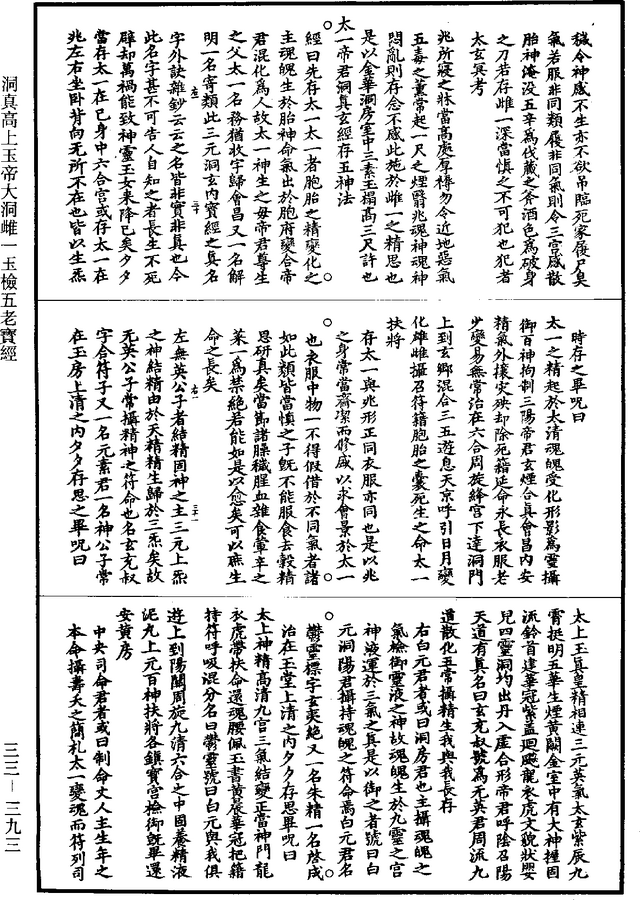 穢令神感不生亦不欲弔臨死家履尸臭
氣若服非同類履非同氣則令三宮感散
胎神淹沒五辛為伐藏之斧酒色為破身
之刀若存雌一深當慎之不可犯也犯者
太玄冥考
兆所寢之牀當高處厚褥勿令近地惡氣
五毒之薰常起一尺之煙翳兆魂神魂神
悶亂則存念不感此施於雌一之精思也
是以金華洞房室中三素玉榻高三尺許也
太一帝君洞真玄經存五神法
經曰先存太一太一者胞胎之精變化之
主魂魄生於胎神命氣出於胞府變合帝
君混化為人故太一神生之母帝君尊生
之父太一名務猶收字歸會昌又一名解
明一名寄類此三元洞玄內寶經之真名
字外訣雜鈔云云之名皆非實非真也今
此名字甚不可告人自知之者長生不死
辟却萬禍能致神靈玉女來降己矣夕夕
當存太一在己身中六合宮或存太一在
兆左右坐臥背向无所不在也皆以生炁
時存之畢呪曰
太一之精起於太清魂魄受化形影為靈攝
御百神拘制三陽帝君玄煙合真會昌內安
精氣外攘災殃却除死籍延命永長衣服老
少變易無常治在六合周旋絳宮下達洞門
上到玄鄉混合三五遊息天京呼引日月變
化雄雌攝召符籍胞胎之囊死生之命太一
扶將
存太一與兆形正同衣服亦同也是以兆
之身常當齋潔而修盛以求會景於太一
也衣服中物一不得假借於不同氣者諸
如此類皆當慎之子既不能服食去穀精
思研真矣當節諸臊穢腥血雜食葷辛之
菜一為禁絕若能如是以愈矣可以庶生
命之長矣
左無英公子者結精固神之主三元上炁
之神結精由於天精精生歸於三炁矣故
无英公子常攝精神之符命也名玄充叔
字合符子又一名元素君一名神公子常
在玉房上清之內夕夕存思之畢呪曰
太上玉真皇精相連三元英氣太玄紫辰九
霄挺明五華生煙黃闕金室中有大神撞固
流鈴首建華冠紫蓋迴飈龍衣虎文貌狀嬰
兒四靈洞均出丹入虛合形帝君呼陰召陽
天道有真名曰玄充叔號為无英君周流九
道散化五常攝精生我與我長存
右白元君者或曰洞房君也主攝魂魄之
氣檢御靈液之神故魂魄生於九靈之宮
神液運於三氣之真是以御之者號曰白
元洞陽君攝持魂魄之符命焉白元君名
鬱靈標字玄夷絕又一名朱精一名啓成
治在玉堂上清之內夕夕存思畢呪曰
太上神精高清九宮三氣結變正當神門龍
衣虎帶扶命還魂腰佩玉書黃晨華冠把籍
持符呼吸混分名曰鬱靈號曰白元與我俱
遊上到陽關周旋九清六合之中固養精液
泥九上元百神扶將各鎮寶宮檢御既畢還
安黃房
中央司命君者或曰制命丈人主生年之
本命攝壽夭之簡札太一變魂而符列司
洞真高上玉帝大洞雌一玉檢五老寶經
三三—三九三